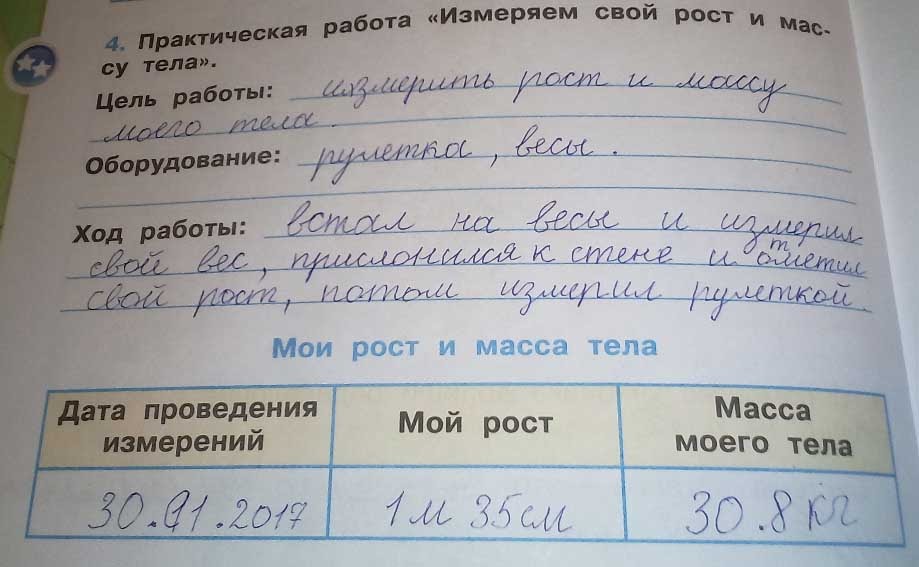 4. Практическая работа «Измеряем свой рост и мас-
су тела».
Цель работы: измерить рост и массу
моего тела.
Оборудование: рулетка, весы.
Ход работы: встал на весы и измерил
свой вес, прислонился к стене и отметил
свой рост, потом измерил рулеткой.
Мои рост и масса тела
Дата проведения измерений | Мой рост | Масса моего тела
30.01.2017 | 1 м 35 см | 30.8 кг